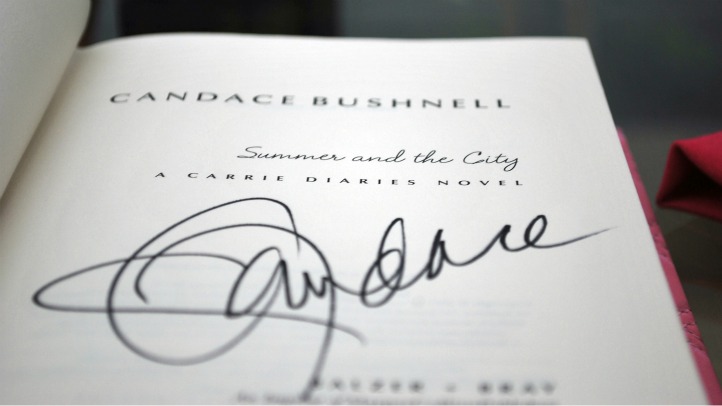 CANDACE BUSHNELL
Summer and the City
A CARRIE DIARIES NOVEL
Candace
BALZER + BRAY